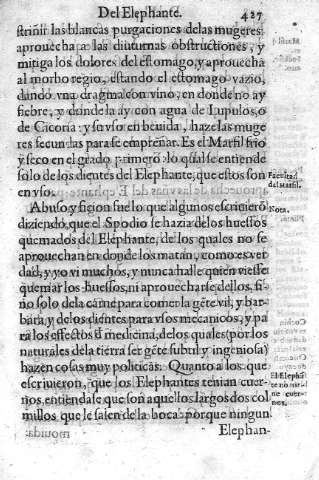 Del Elephante. 427
striñir las blancas purgaciones delas mugeres:
aprouecha a las diuturnas obstructiones, y
mitiga los dolores del estomago, y aprouecha
al morbo regio, estando el estomago vazio,
dando vna dragma con vino, en donde no ay
fiebre, y donde la ay con agua de Lupulos, o
de Cicoria: y su vso en beuida, haze las muge
res fecundas para se empreñar. Es el Marfil frio
y seco en el grado primero: lo qual se entiende
solo de los dientes del Elephante, que estos son
en vso.
Facultad
del Marfil.
Abuso y ficion fue lo que algunos escriuierō
Nota.
diziendo, que el Spodio se hazia de los huessos
quemados del Elephante, de los quales no se
aprouechan en donde los matan, como es ver
dad, y yo vi muchos, y nunca halle quien viesse
quemar los huessos, ni aprouecharse dellos, si
no solo dela carne para comer la gēte vil, y bar-
bara, y de los dientes para vsos mecanicos, y pa
ra los effectos đ medicina, delos quales (por los
naturales dela tierra ser gēte subtil y ingeniosa)
hazen cosas muy politicas. Quanto a los que
escriuieron, que los Elephantes tenian cuer-
El Elephā
te no tie
ne cuer-
nos.
nos, entiendase que son aquellos largos dos col
millos que le salen de la boca: porque ningun
Elephan-